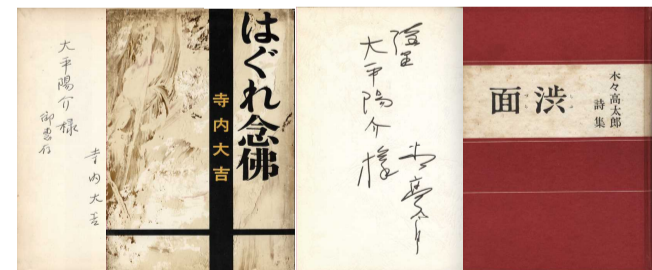 大平陽介様
御恵存
寺内大吉
はぐれ念佛
寺内大吉
大平陽介様
木々高太郎
詩集
渋面